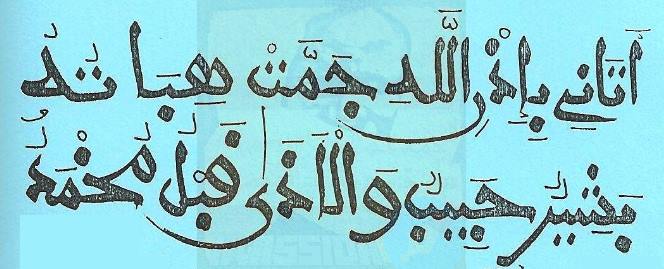 أَتَانِي بِإِذْنِ اللَّهِ جَمَّتْ هِبَاتُهُ
بَشِيرٌ حَبِيبٌ وَالْأَذَى قَبْلُ مُخْمَدُ